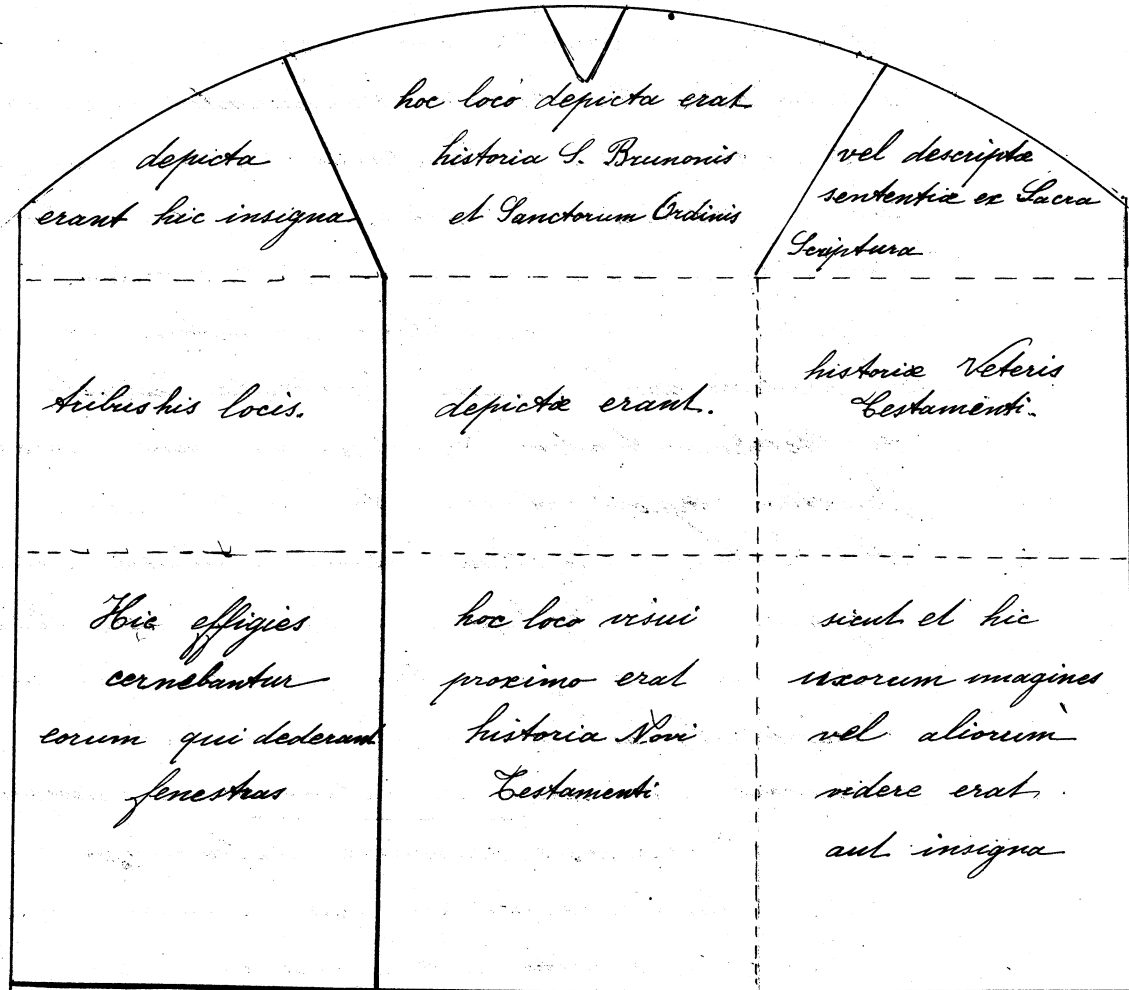 depicta
erant hic insigna
hoc loco depicta erat
historia S. Brunonis
et Sanctorum Ordinis
vel descriptæ
sententiæ ex Sacra
Scriptura
tribus his locis.
depictæ erant.
historiæ Veteris
Testamenti.
Hic effigies
cernebantur
eorum qui dederant
fenestras
hoc loco visui
proximo erat
historia Novi
Testamenti
sicut et hic
uxorum imagines
vel aliorum
videre erat
aut insigna